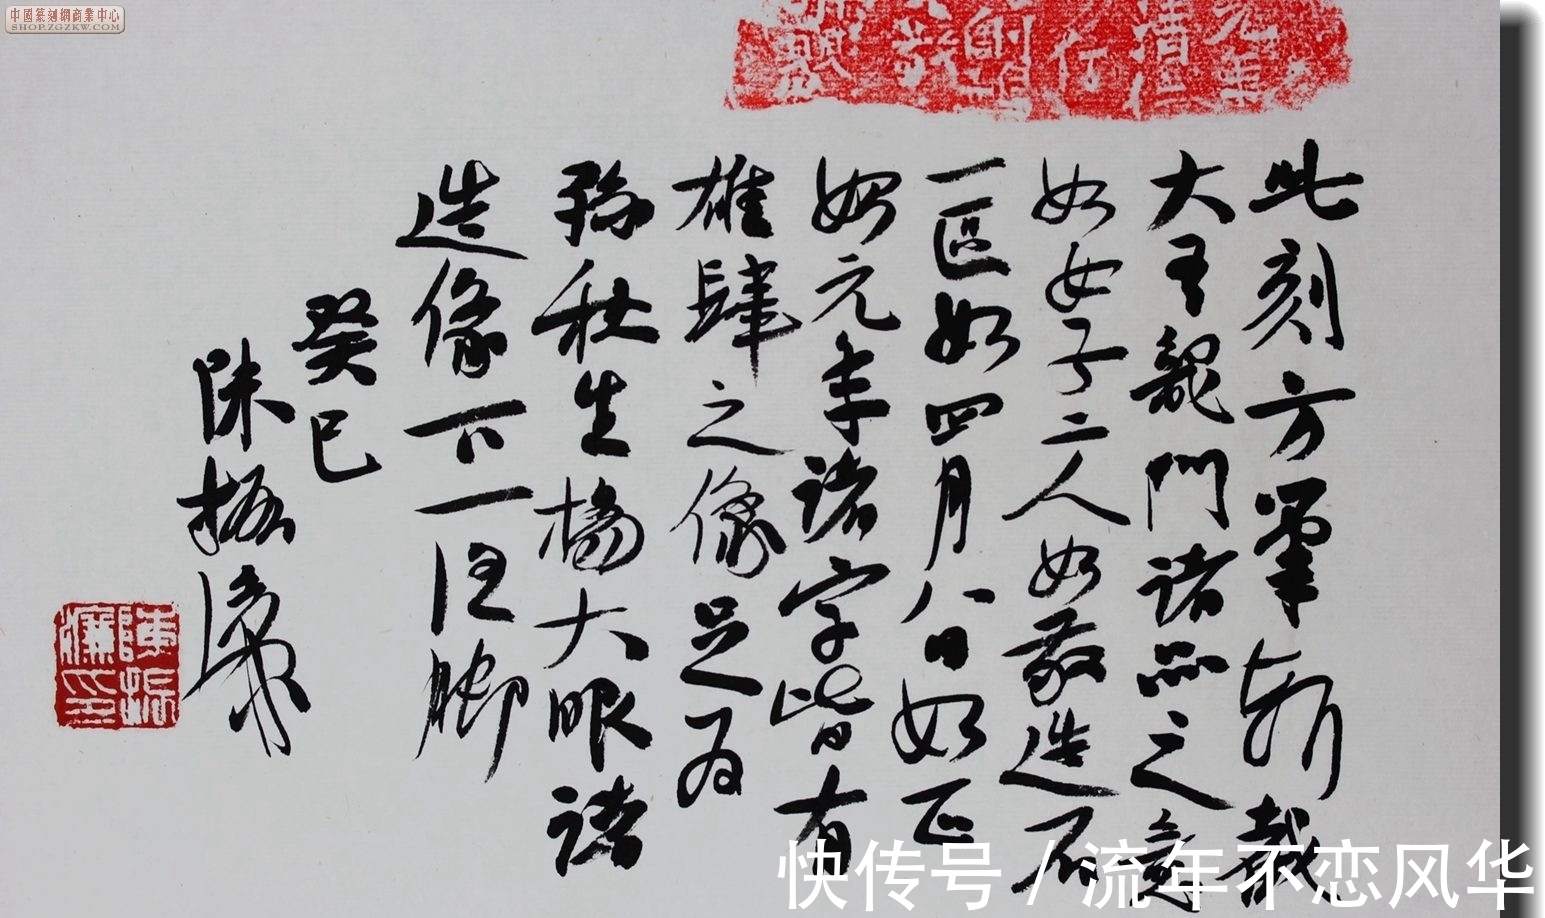 中國篆刻網商業中心
SHOP.ZGZKW.COM
此刻方筆斬截
大有龍門諸品之意
如女子二人如敬造石
一區如四月八日如正
始元年諸字皆有
雄肆之像足为
孫秋生楊大眼諸
造像下一注脚
癸巳
陳振濂
陳振濂印
快传号 / 流年不恋风华